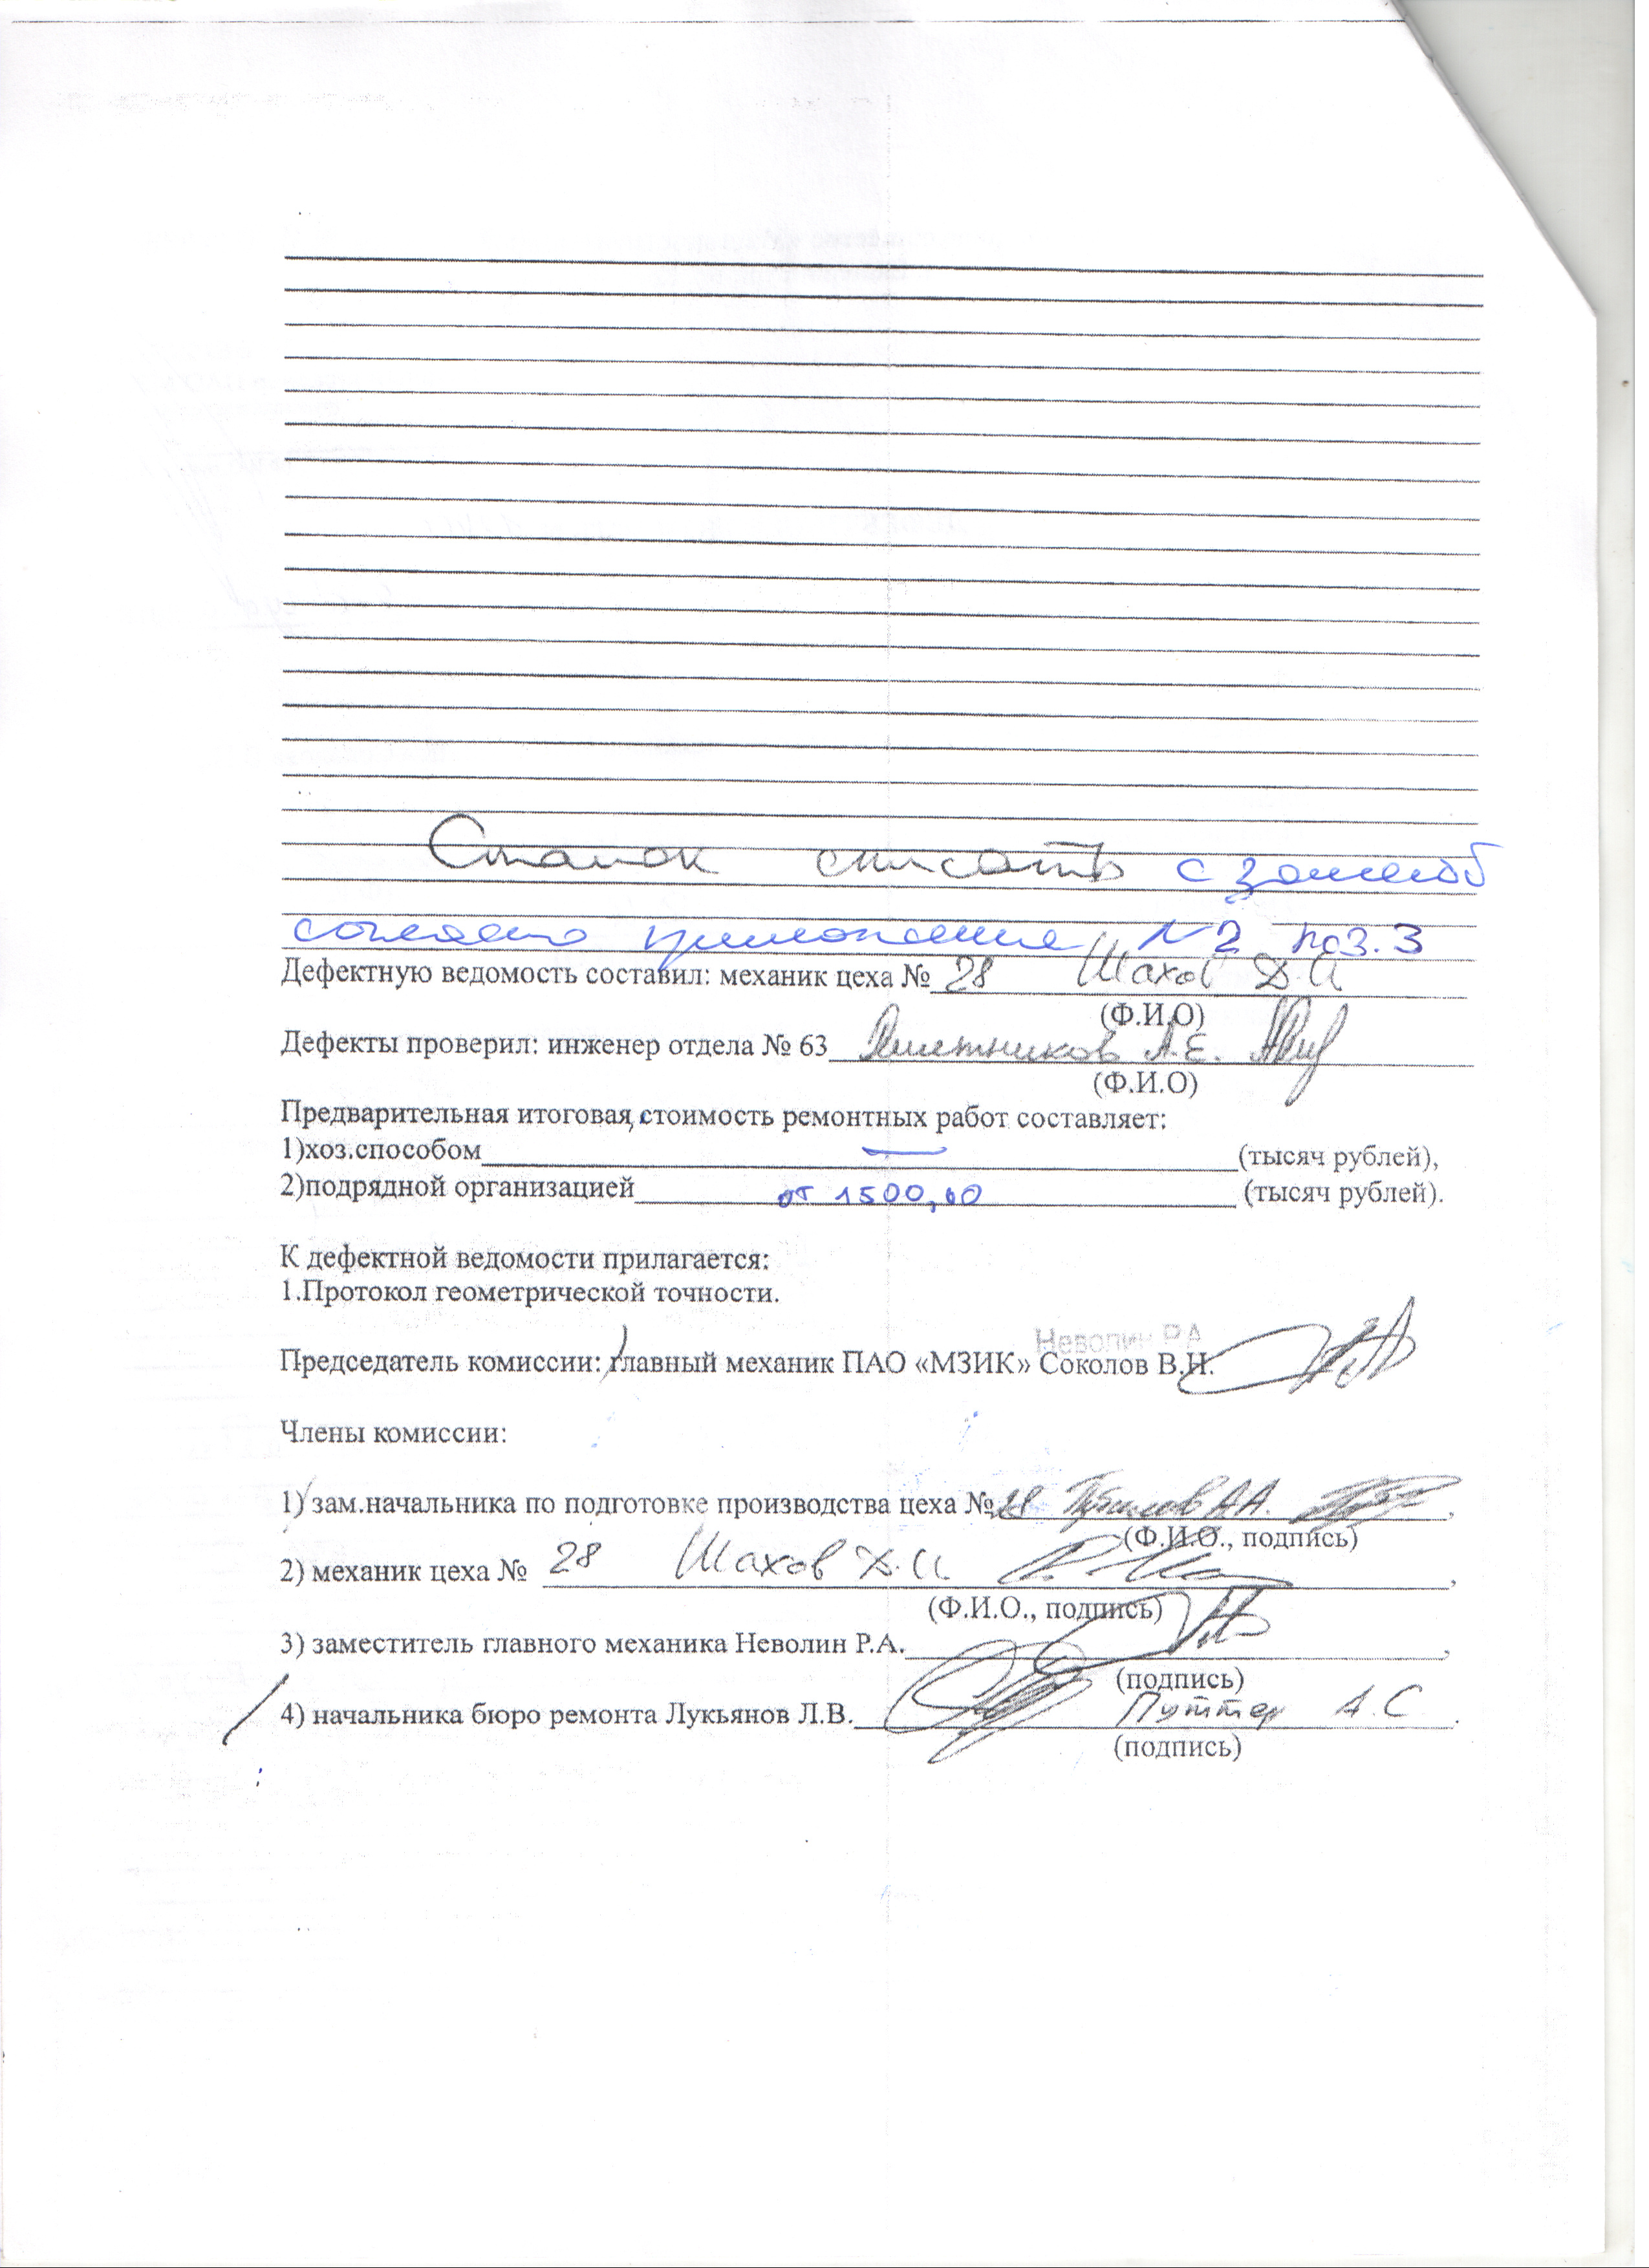 Станок списать с заменой
согласно приложение №2 поз. 3
Дефектную ведомость составил: механик цеха № 28 Шахов Д.И
(Ф.И.О)
Дефекты проверил: инженер отдела № 63 А.Е.
(Ф.И.О)
Предварительная итоговая, стоимость ремонтных работ составляет:
1)хоз.способом — (тысяч рублей),
2)подрядной организацией от 1500,00 (тысяч рублей).
К дефектной ведомости прилагается:
1.Протокол геометрической точности.
Неволин Р.А
Председатель комиссии: главный механик ПАО «МЗИК» Соколов В.Н.
Члены комиссии:
1) зам.начальника по подготовке производства цеха № 28 А.А.
(Ф.И.О., подпись)
2) механик цеха № 28 Шахов Д.И
(Ф.И.О., подпись)
3) заместитель главного механика Неволин Р.А.
(подпись)
4) начальника бюро ремонта Лукьянов Л.В. Путтер А.С
(подпись)